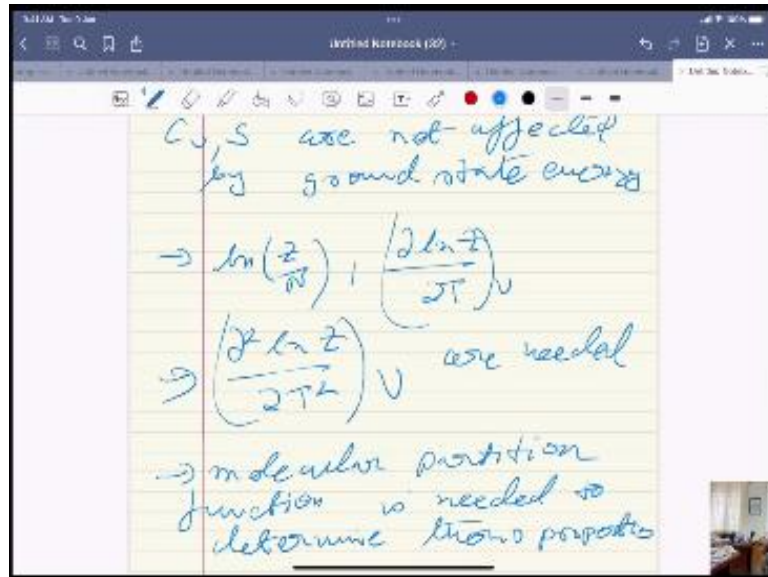 Untitled Notebook (32)
Cv, S are not affected
by ground state energy
→ ln(Z/N), (∂ ln Z / ∂T)v
→ (∂² ln Z / ∂T²)v are needed
→ molecular partition
function is needed to
determine